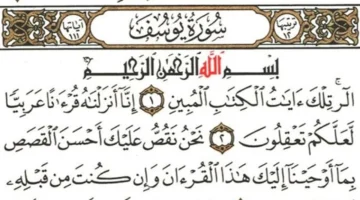 سُورَةُ يُوسُفَ
بِسْمِ اللَّهِ الرَّحْمَٰنِ الرَّحِيمِ
الٓر ۚ تِلْكَ ءَايَٰتُ ٱلْكِتَٰبِ ٱلْمُبِينِ ١ إِنَّآ أَنزَلْنَٰهُ قُرْءَٰنًا عَرَبِيًّا
لَّعَلَّكُمْ تَعْقِلُونَ ٢ نَحْنُ نَقُصُّ عَلَيْكَ أَحْسَنَ ٱلْقَصَصِ
بِمَآ أَوْحَيْنَآ إِلَيْكَ هَٰذَا ٱلْقُرْءَانَ وَإِن كُنتَ مِن قَبْلِهِۦ